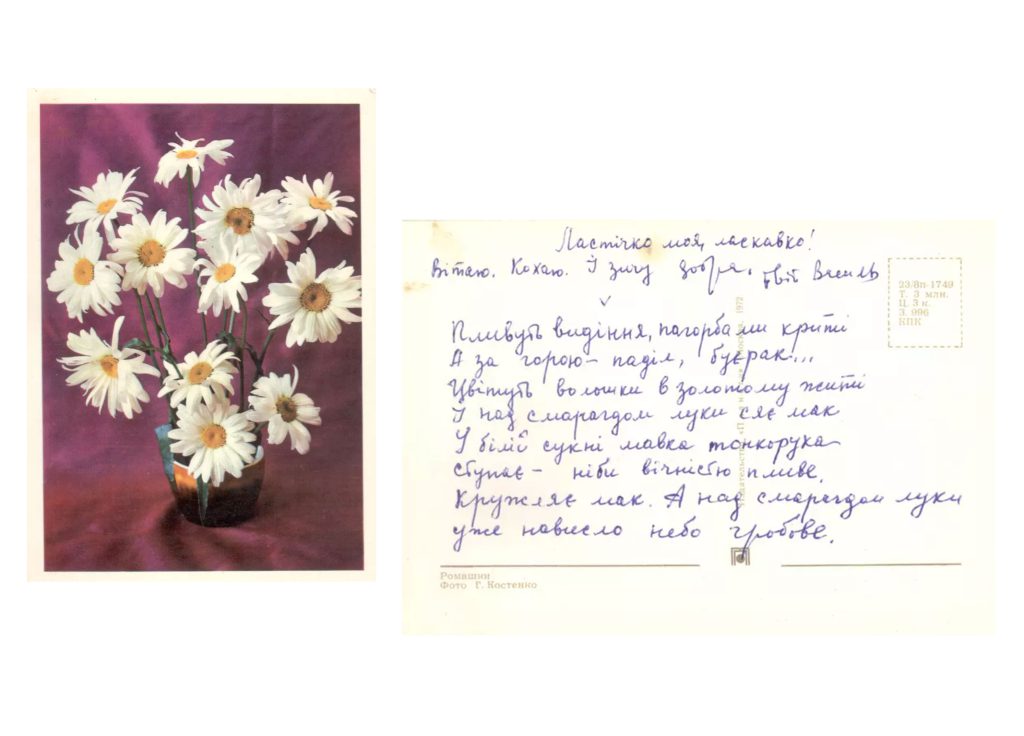 Ластічко моя, ласкавко!
Вітаю. Кохаю. Й зичу добра. твій Василь
Пливуть видіння, пагорбами криті
А за горою – паділ, буєрак...
Цвітуть волошки в золотому житі
І над смарагдом луки сяє мак
У білій сукні мавка тонкорука
ступає – ніби вічністю пливе.
Кружляє мак. А над смарагдом луки
уже нависло небо гробове.
23/8п-1749
Т. 3 млн.
Ц. 3 к.
З. 996
КПК
1972
Ромашки
Фото Г. Костенко